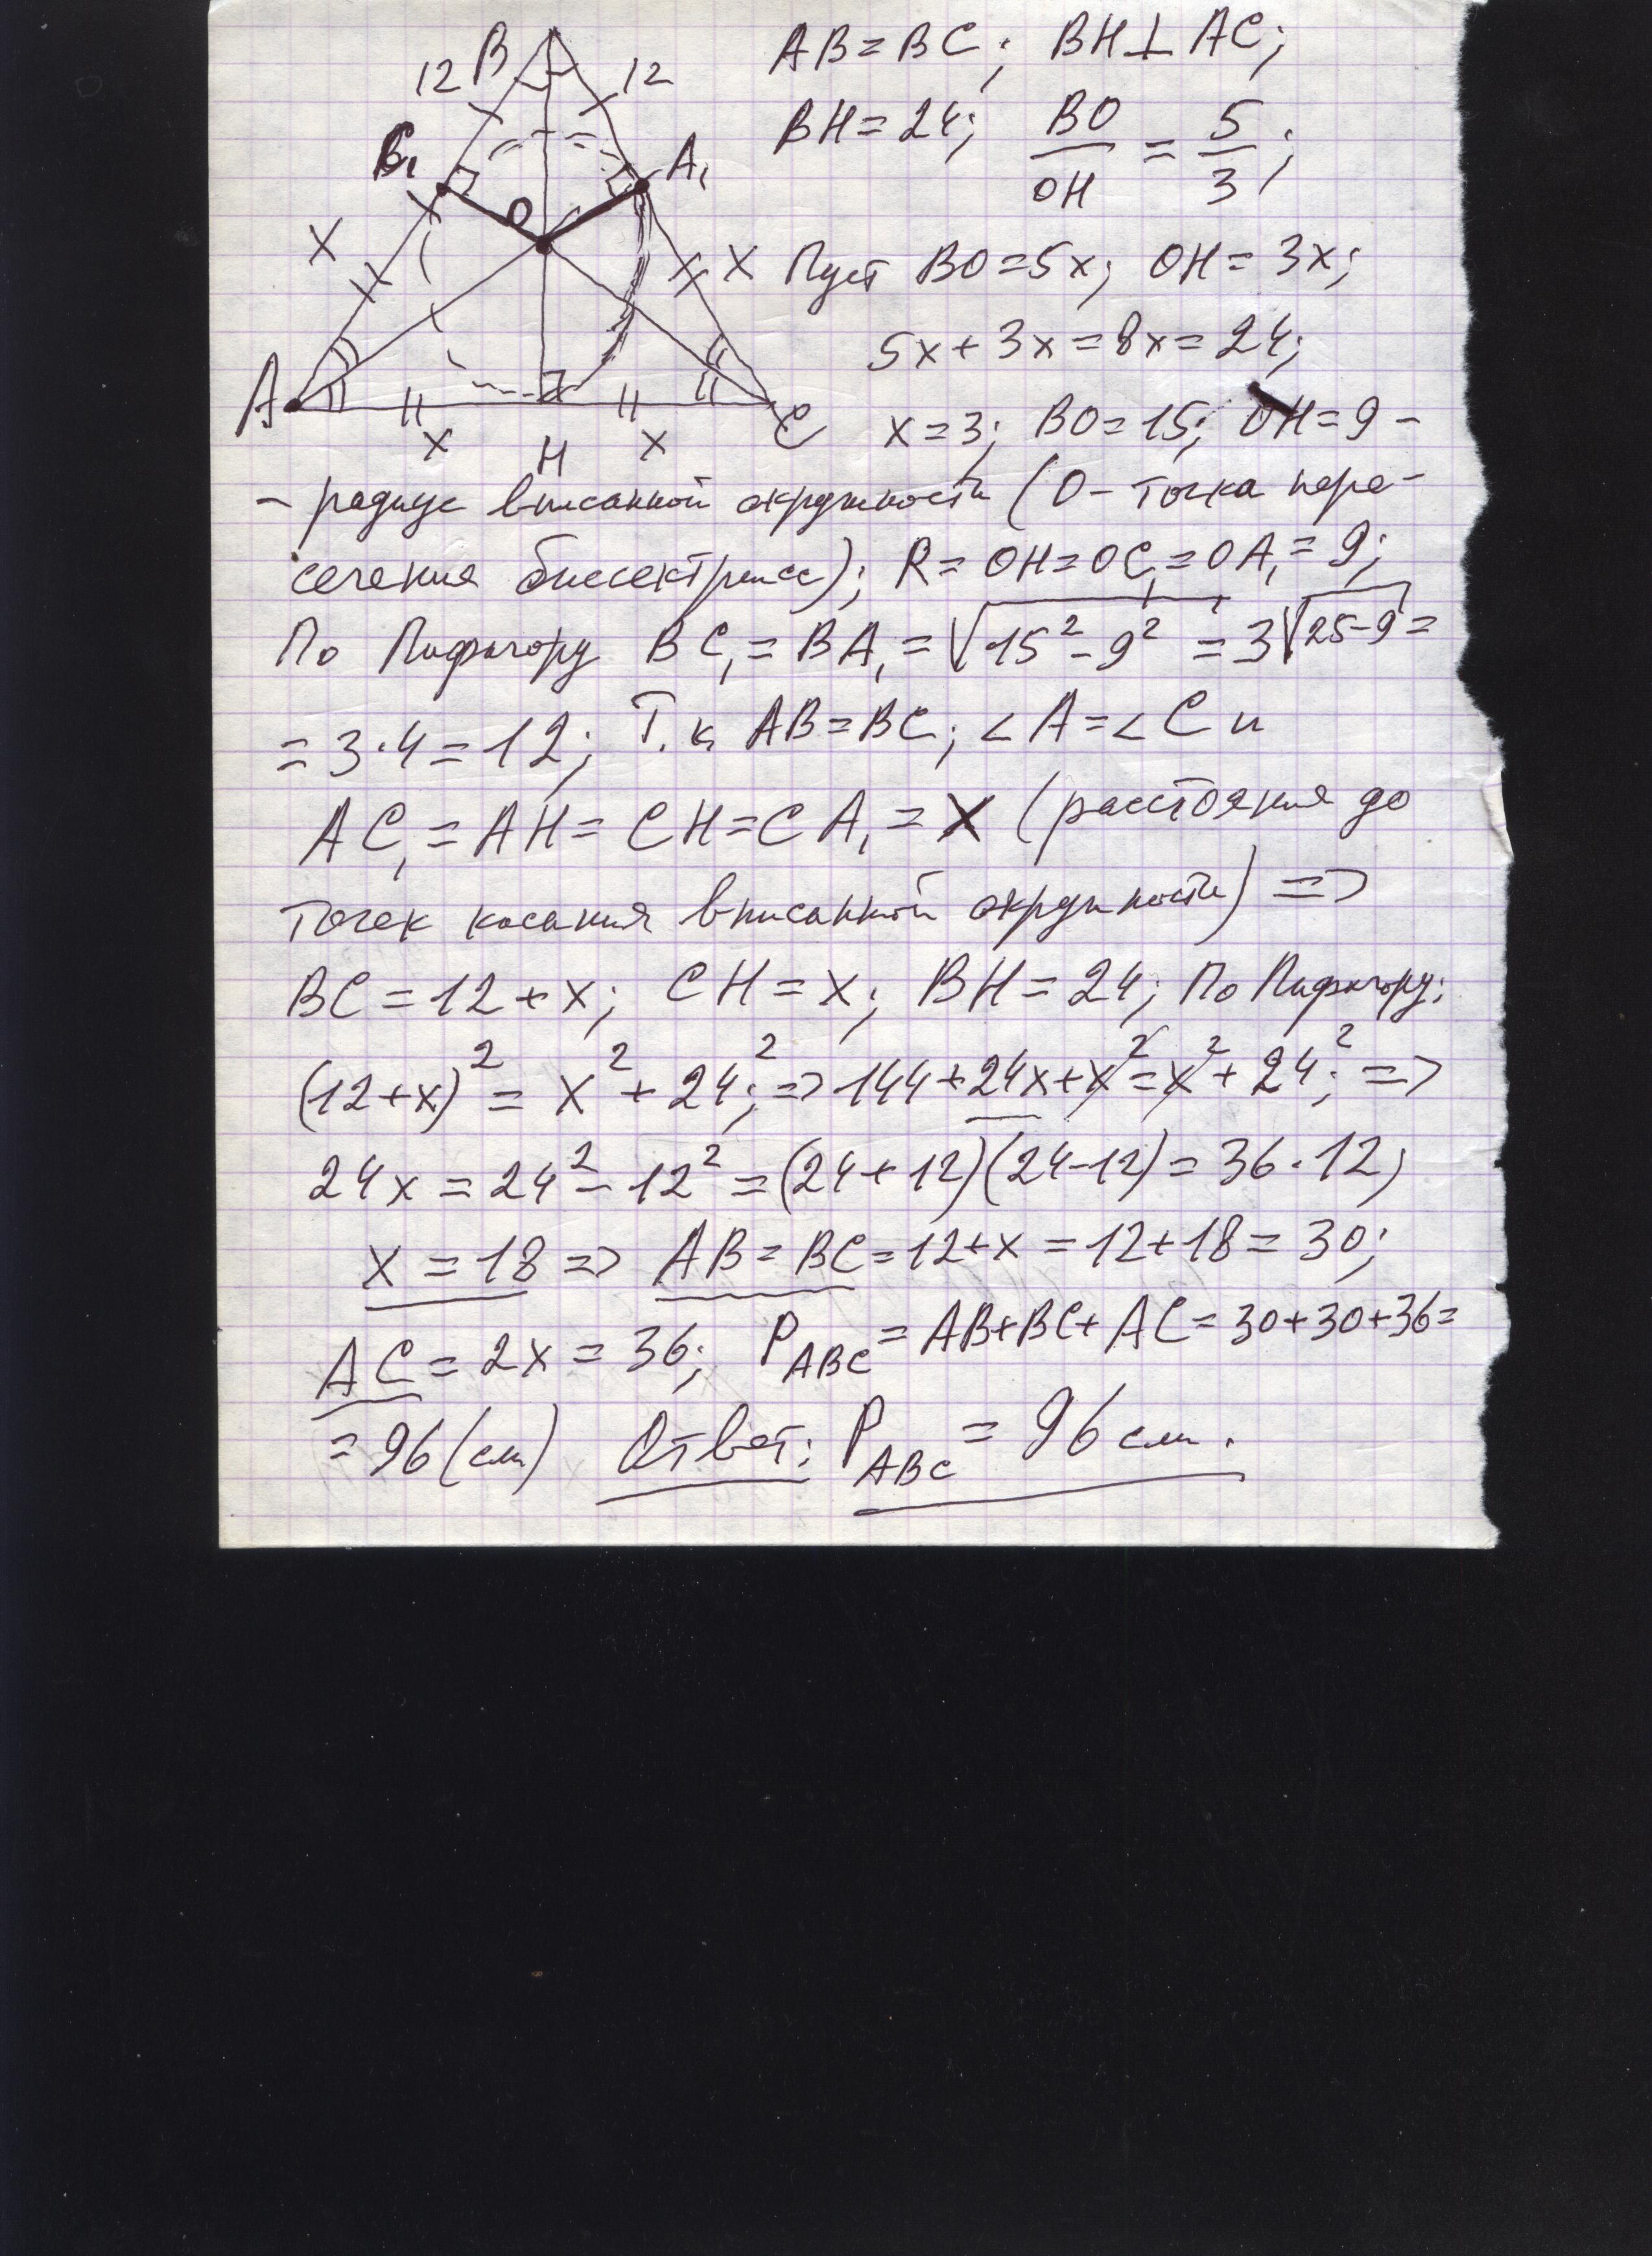 B
12
12
C₁
A₁
O
x
x
A
x
H
x
C
AB = BC; BH ⊥ AC;
BH = 24; BO/OH = 5/3;
Пуст BO = 5x; OH = 3x;
5x + 3x = 8x = 24;
x = 3; BO = 15; OH = 9 -
- радиус вписанной окружности (O - точка пере-
сечения биссектрисс); R = OH = OC₁ = OA₁ = 9;
По Пифагору BC₁ = BA₁ = √(15² - 9²) = 3√(25-9) =
= 3·4 = 12; Т.к. AB = BC; ∠A = ∠C и
AC₁ = AH = CH = CA₁ = X (расстояния до
точек касания вписанной окружности) =>
BC = 12 + x; CH = x; BH = 24; По Пифагору:
(12+x)² = x² + 24²; => 144 + 24x + x² = x² + 24²; =>
24x = 24² - 12² = (24 + 12)(24 - 12) = 36·12;
x = 18 => AB = BC = 12 + x = 12 + 18 = 30;
AC = 2x = 36; P_ABC = AB + BC + AC = 30 + 30 + 36 =
= 96 (см) Ответ: P_ABC = 96 см.